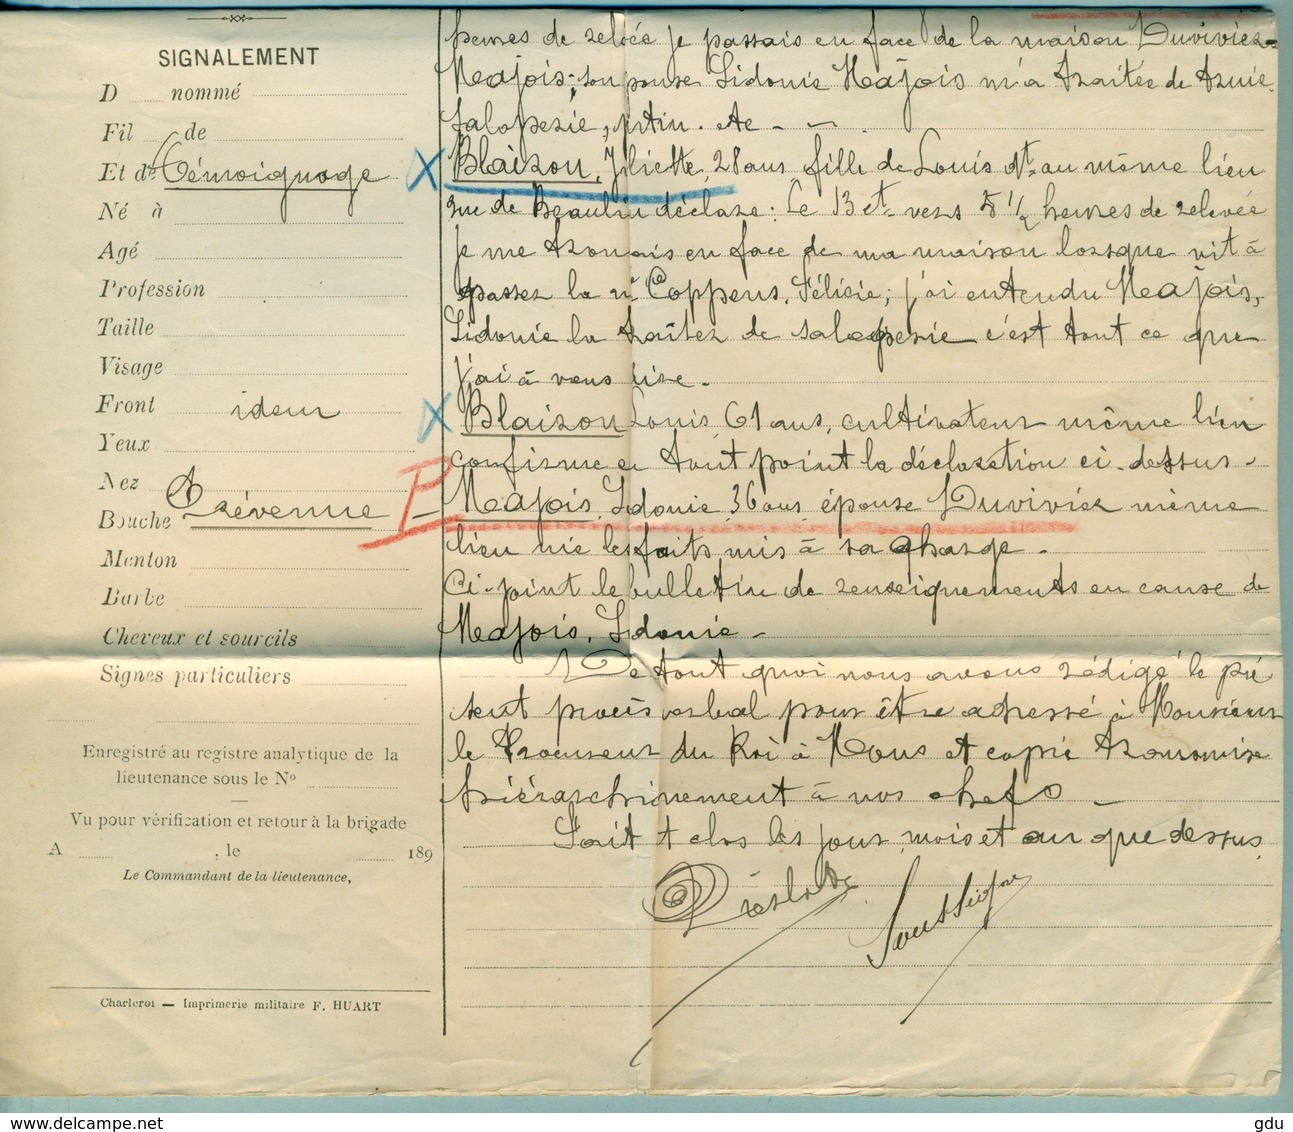 SIGNALEMENT
D nommé
Fil de
Et de
Témoignage
Né à
Agé
Profession
Taille
Visage
Front
idem
Yeux
Nez
Prévenue
Bouche
Menton
Barbe
Cheveux et sourcils
Signes particuliers
Enregistré au registre analytique de la
lieutenance sous le Nº
Vu pour vérification et retour à la brigade
A , le 189
Le Commandant de la lieutenance,
Charleroi — Imprimerie militaire F. HUART
heures de relevée je passais en face de la maison Duvivier-
Majois; son épouse Sidonie Majois m'a traitée de truie
saloperie, putin. etc —
X Blaison, Juliette, 28 ans fille de Louis dt au même lieu
rue de Beaulieu déclare: Le 13 ct vers 5 ½ heures de relevée
je me trouvais en face de ma maison lorsque vit à
passer la née Coppens, Félicie; j'ai entendu Majois,
Sidonie la traiter de saloperie c'est tout ce que
j'ai à vous dire.
X Blaison Louis, 61 ans, cultivateur même lieu
confirme en tout point la déclaration ci-dessus.
P – Majois, Sidonie, 36 ans, épouse Duvivier même
lieu nie les faits mis à sa charge.
Ci-joint le bulletin de renseignements en cause de
Majois, Sidonie —
De tout quoi nous avons rédigé le pré
sent procès verbal pour être adressé à Monsieur
le Procureur du Roi à Mons et copie transmise
hiérarchiquement à nos chefs —
Fait et clos les jour, mois et an que dessus.
gdu